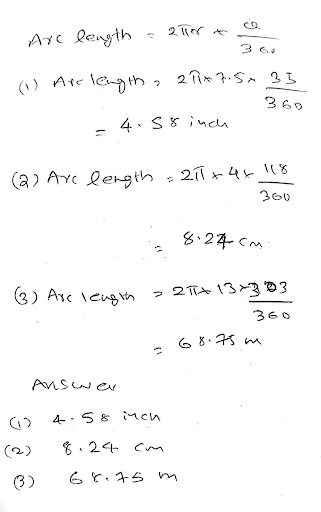 Arc length = 2πr × θ/360
(1) Arc length, 2π×7.5× 35/360
= 4.58 inch
(2) Arc length = 2π × 4× 118/360
= 8.24 cm
(3) Arc length = 2π× 13×303/360
= 68.75 m
Answer
(1) 4.58 inch
(2) 8.24 cm
(3) 68.75 m